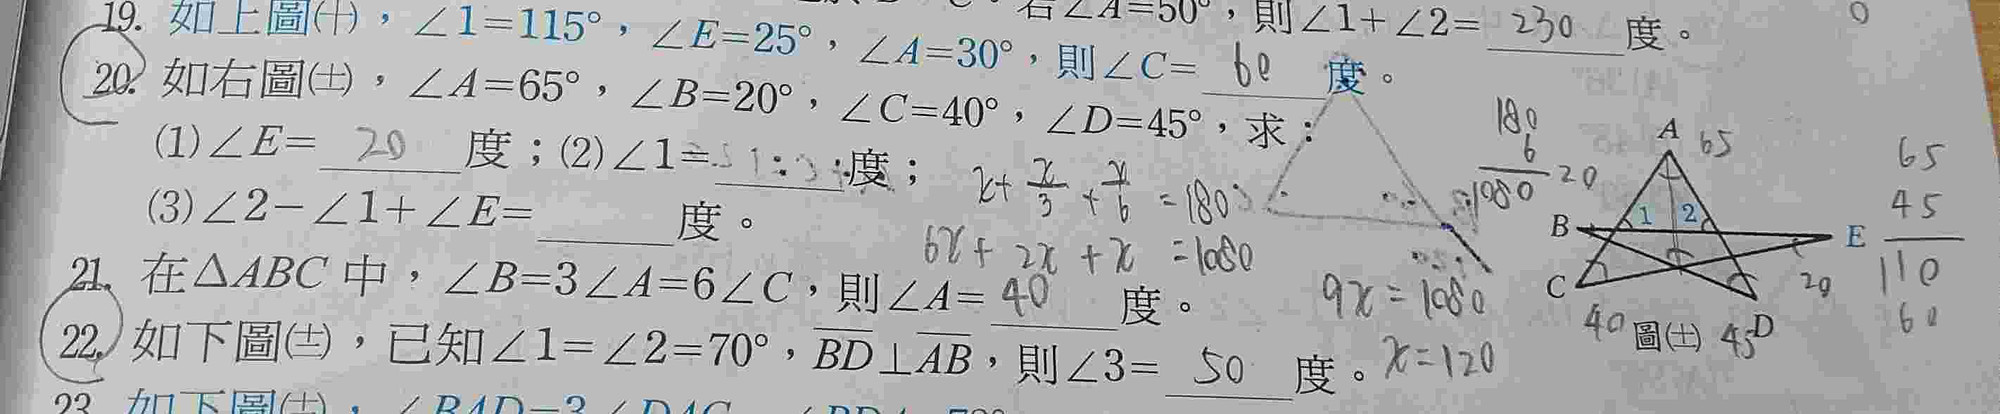 若∠A=50°，則∠1+∠2= 230 度。
19. 如上圖(十)，∠1=115°，∠E=25°，∠A=30°，則∠C= 60 度。
20. 如右圖(土)，∠A=65°，∠B=20°，∠C=40°，∠D=45°，求：
(1)∠E= 20 度；(2)∠1= 度；
(3)∠2-∠1+∠E= 度。
21. 在△ABC中，∠B=3∠A=6∠C，則∠A= 40 度。
22. 如下圖(圭)，已知∠1=∠2=70°，BD⊥AB，則∠3= 50 度。
23. 如下圖
x+x/3+x/6=180
6x+2x+x=1080
9x=1080
x=120
180
6
1080
20
A 65
B 1 2 E
C D
40 45 20
圖(土)
65
45
110
60